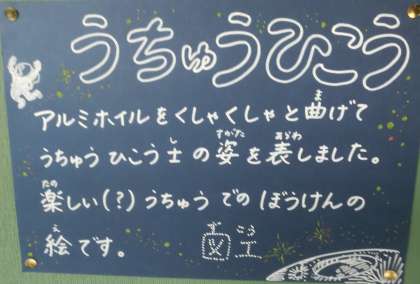 うちゅうひこう
アルミホイルをくしゃくしゃと曲げて
うちゅうひこう士の姿を表しました。
楽しい(?)うちゅうでのぼうけんの
絵です。 図工